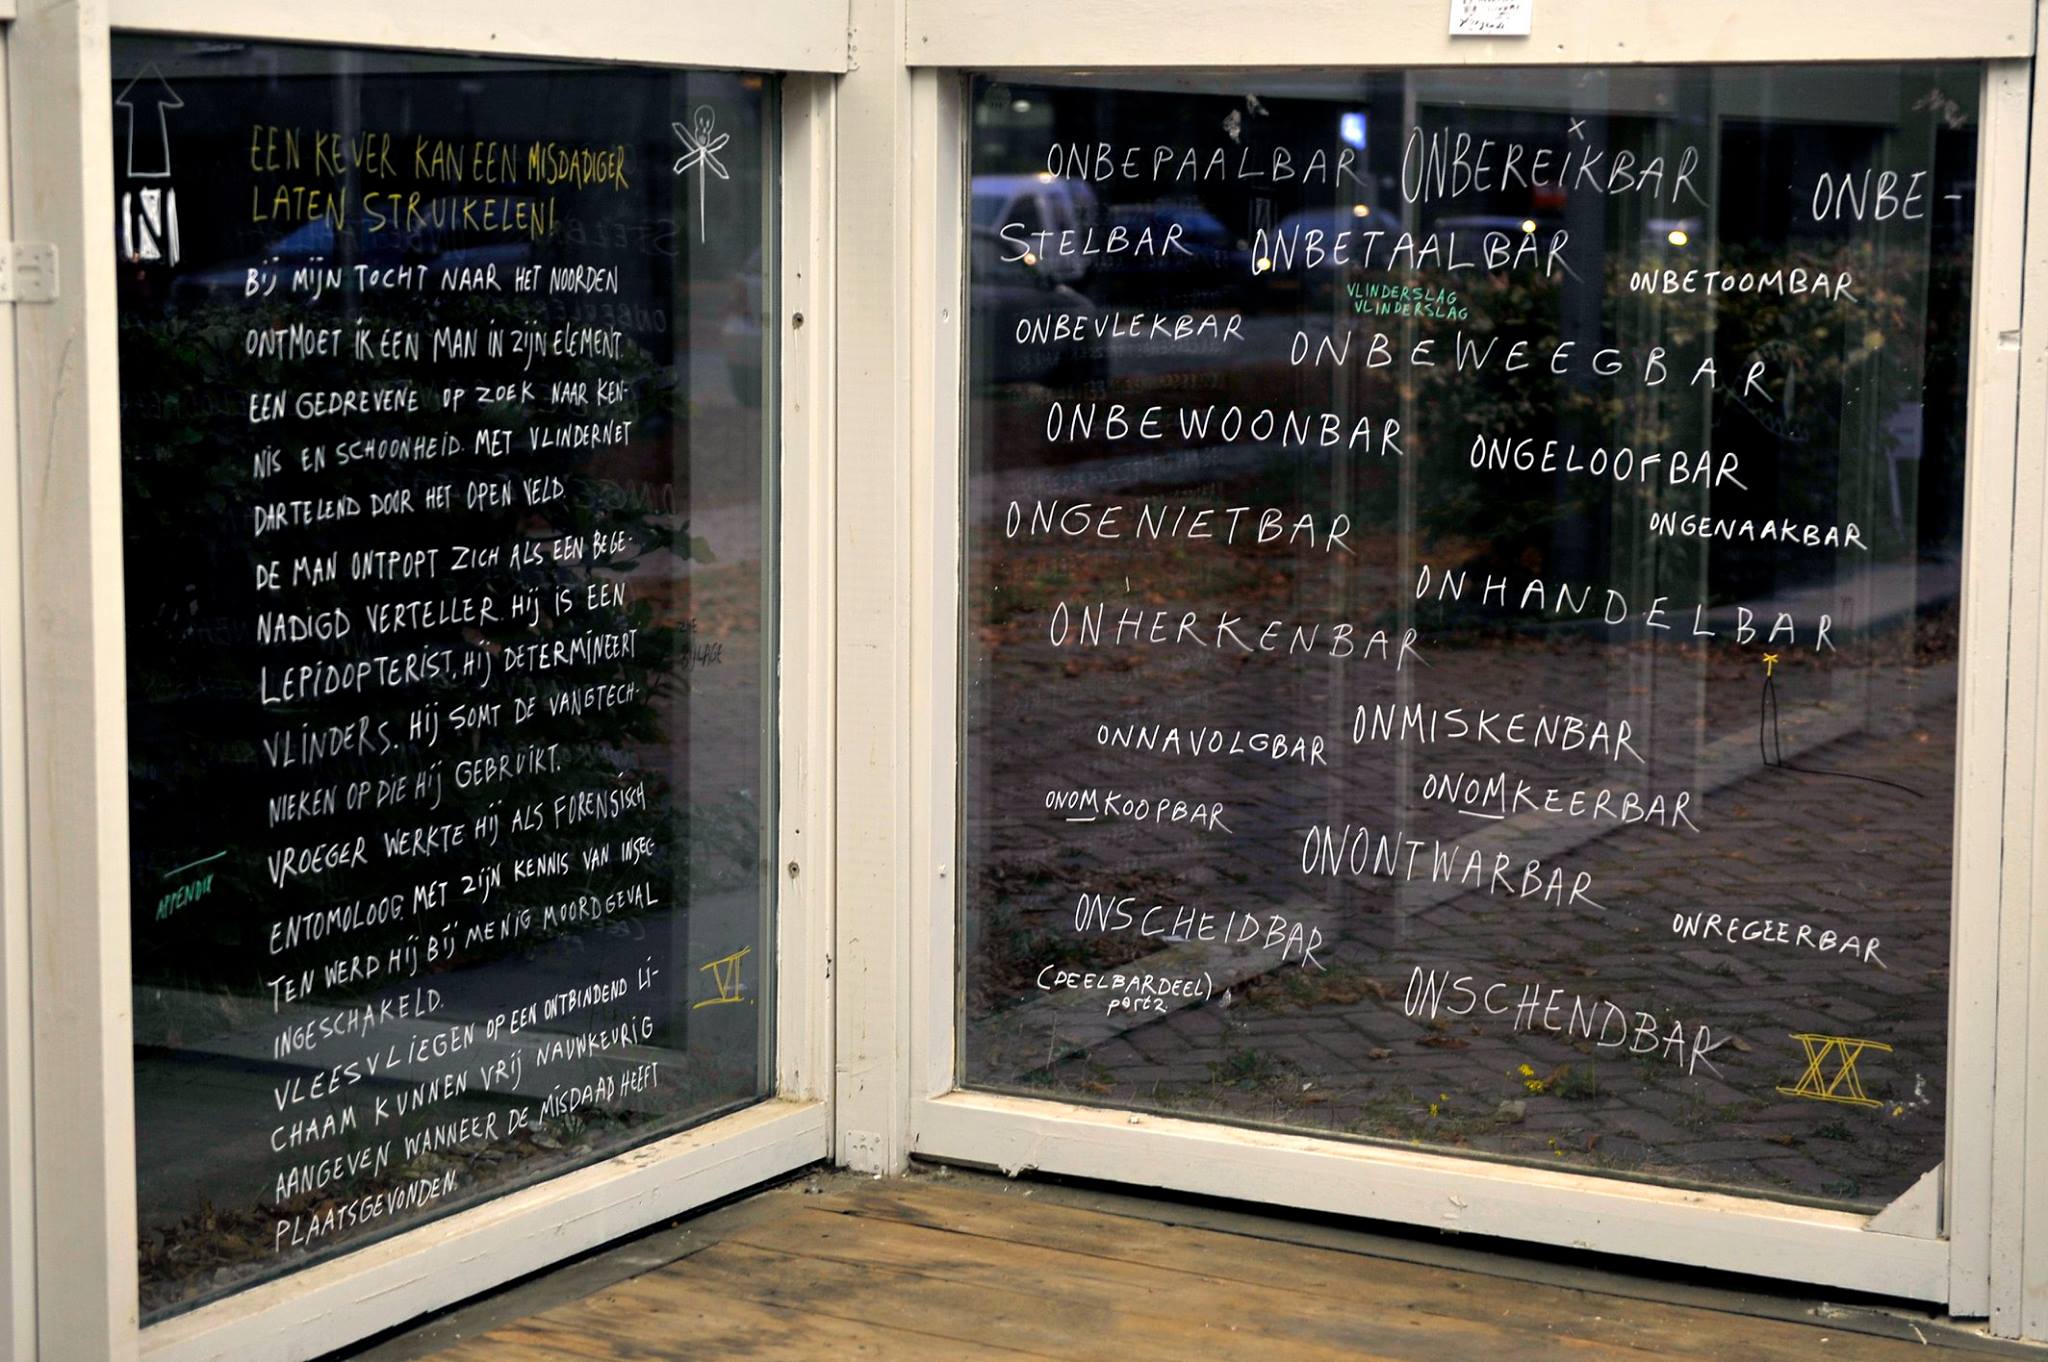 N
EEN KEVER KAN EEN MISDADIGER
LATEN STRUIKELEN!
BIJ MIJN TOCHT NAAR HET NOORDEN
ONTMOET IK EEN MAN IN ZIJN ELEMENT.
EEN GEDREVENE OP ZOEK NAAR KEN-
NIS EN SCHOONHEID. MET VLINDERNET
DARTELEND DOOR HET OPEN VELD.
DE MAN ONTPOPT ZICH ALS EEN BEGE-
NADIGD VERTELLER. HIJ IS EEN
LEPIDOPTERIST. HIJ DETERMINEERT
VLINDERS. HIJ SOMT DE VANGTECH-
NIEKEN OP DIE HIJ GEBRUIKT.
VROEGER WERKTE HIJ ALS FORENSISCH
ENTOMOLOOG. MET ZIJN KENNIS VAN INSEC-
TEN WERD HIJ BIJ MENIG MOORDGEVAL
INGESCHAKELD.
VLEESVLIEGEN OP EEN ONTBINDEND LI-
CHAAM KUNNEN VRIJ NAUWKEURIG
AANGEVEN WANNEER DE MISDAAD HEEFT
PLAATSGEVONDEN.
APPENDIX
ZIE
BIJLAGE
VI.
ONBEPAALBAR ONBEREIKBAR ONBE-
STELBAR ONBETAALBAR ONBETOOMBAR
VLINDERSLAG
VLINDERSLAG
ONBEVLEKBAR ONBEWEEGBAR
ONBEWOONBAR ONGELOOFBAR
ONGENIETBAR ONGENAAKBAR
ONHERKENBAR ONHANDELBAR
ONNAVOLGBAR ONMISKENBAR
ONOMKOOPBAR ONOMKEERBAR
ONONTWARBAR
ONSCHEIDBAR ONREGEERBAR
(DEELBARDEEL)
part 2.
ONSCHENDBAR
XX